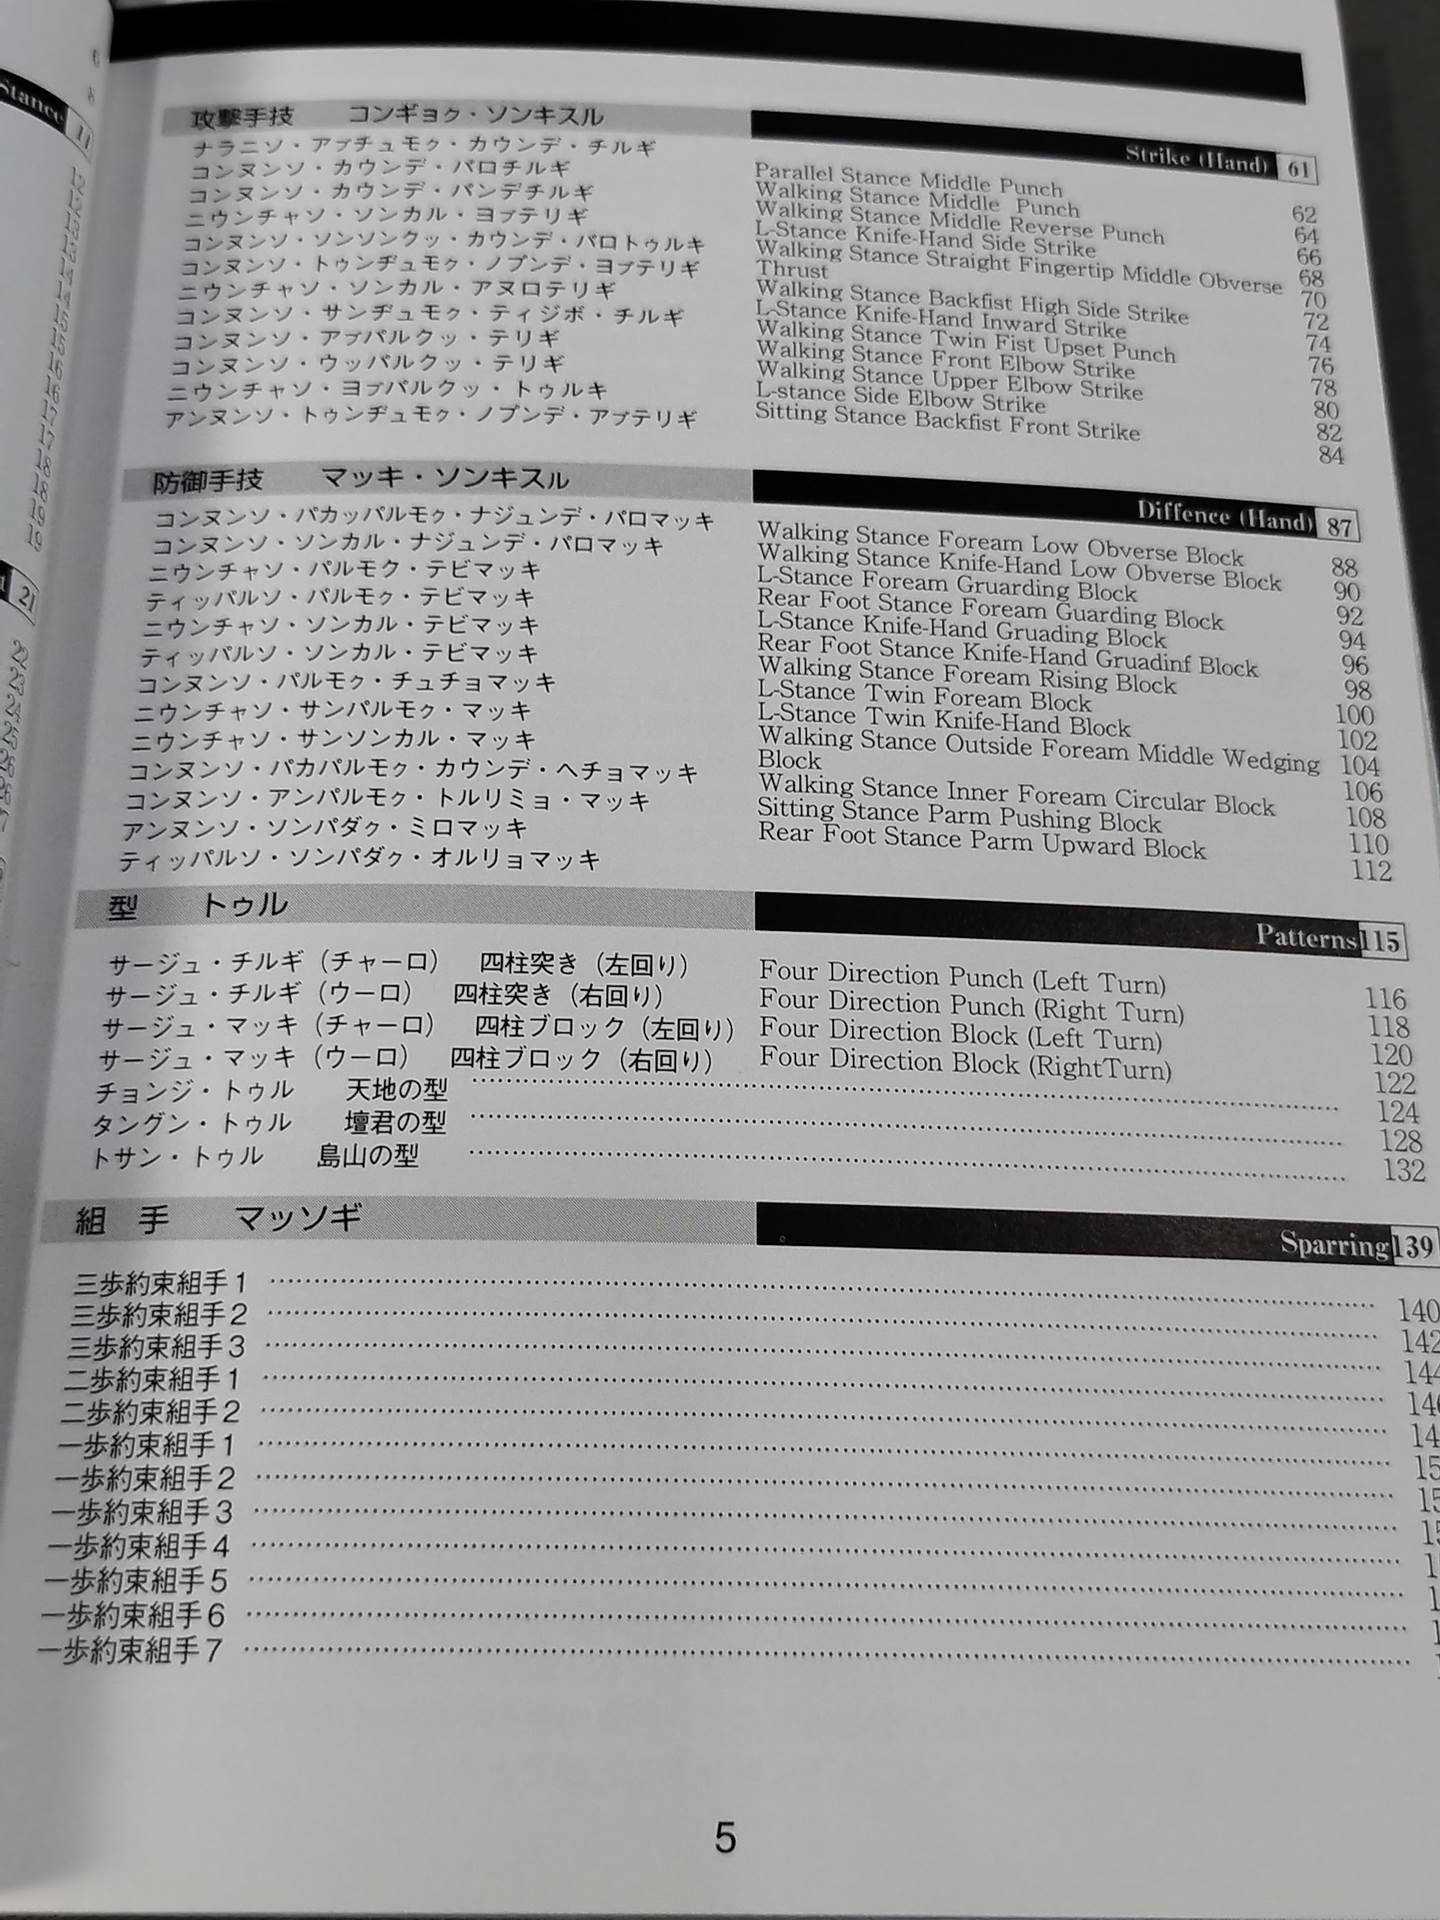 攻撃手技 コンギョク・ソンキスル
Strike (Hand) 61
ナラニソ・アプチュモク・カウンデ・チルギ
コンヌンソ・カウンデ・バロチルギ
コンヌンソ・カウンデ・バンデチルギ
ニウンチャソ・ソンカル・ヨプテリギ
コンヌンソ・ソンソンクッ・カウンデ・バロトゥルキ
コンヌンソ・トゥンヂュモク・ノプンデ・ヨプテリギ
ニウンチャソ・ソンカル・アヌロテリギ
コンヌンソ・サンヂュモク・ティジボ・チルギ
コンヌンソ・アプパルクッ・テリギ
コンヌンソ・ウッパルクッ・テリギ
ニウンチャソ・ヨプパルクッ・トゥルキ
アンヌンソ・トゥンヂュモク・ノプンデ・アプテリギ
Parallel Stance Middle Punch 62
Walking Stance Middle Punch 64
Walking Stance Middle Reverse Punch 66
L-Stance Knife-Hand Side Strike 68
Walking Stance Straight Fingertip Middle Obverse
Thrust 70
Walking Stance Backfist High Side Strike 72
L-Stance Knife-Hand Inward Strike 74
Walking Stance Twin Fist Upset Punch 76
Walking Stance Front Elbow Strike 78
Walking Stance Upper Elbow Strike 80
L-stance Side Elbow Strike 82
Sitting Stance Backfist Front Strike 84
防御手技 マッキ・ソンキスル
Diffence (Hand) 87
コンヌンソ・パカッパルモク・ナジュンデ・パロマッキ
コンヌンソ・ソンカル・ナジュンデ・パロマッキ
ニウンチャソ・パルモク・テビマッキ
ティッパルソ・パルモク・テビマッキ
ニウンチャソ・ソンカル・テビマッキ
ティッパルソ・ソンカル・テビマッキ
コンヌンソ・パルモク・チュチョマッキ
ニウンチャソ・サンパルモク・マッキ
ニウンチャソ・サンソンカル・マッキ
コンヌンソ・パカパルモク・カウンデ・ヘチョマッキ
コンヌンソ・アンパルモク・トルリミョ・マッキ
アンヌンソ・ソンパダク・ミロマッキ
ティッパルソ・ソンパダク・オルリョマッキ
Walking Stance Foream Low Obverse Block 88
Walking Stance Knife-Hand Low Obverse Block 90
L-Stance Foream Gruarding Block 92
Rear Foot Stance Foream Guarding Block 94
L-Stance Knife-Hand Gruading Block 96
Rear Foot Stance Knife-Hand Gruadinf Block 98
Walking Stance Foream Rising Block 100
L-Stance Twin Foream Block 102
L-Stance Twin Knife-Hand Block 104
Walking Stance Outside Foream Middle Wedging
Block 106
Walking Stance Inner Foream Circular Block 108
Sitting Stance Parm Pushing Block 110
Rear Foot Stance Parm Upward Block 112
型 トゥル
Patterns 115
サージュ・チルギ（チャーロ） 四柱突き（左回り） Four Direction Punch (Left Turn) 116
サージュ・チルギ（ウーロ） 四柱突き（右回り） Four Direction Punch (Right Turn) 118
サージュ・マッキ（チャーロ） 四柱ブロック（左回り） Four Direction Block (Left Turn) 120
サージュ・マッキ（ウーロ） 四柱ブロック（右回り） Four Direction Block (RightTurn) 122
チョンジ・トゥル 天地の型 124
タングン・トゥル 壇君の型 128
トサン・トゥル 島山の型 132
組 手 マッソギ
Sparring 139
三歩約束組手1 140
三歩約束組手2 142
三歩約束組手3
二歩約束組手1
二歩約束組手2
一歩約束組手1
一歩約束組手2
一歩約束組手3
一歩約束組手4
一歩約束組手5
一歩約束組手6
一歩約束組手7
5